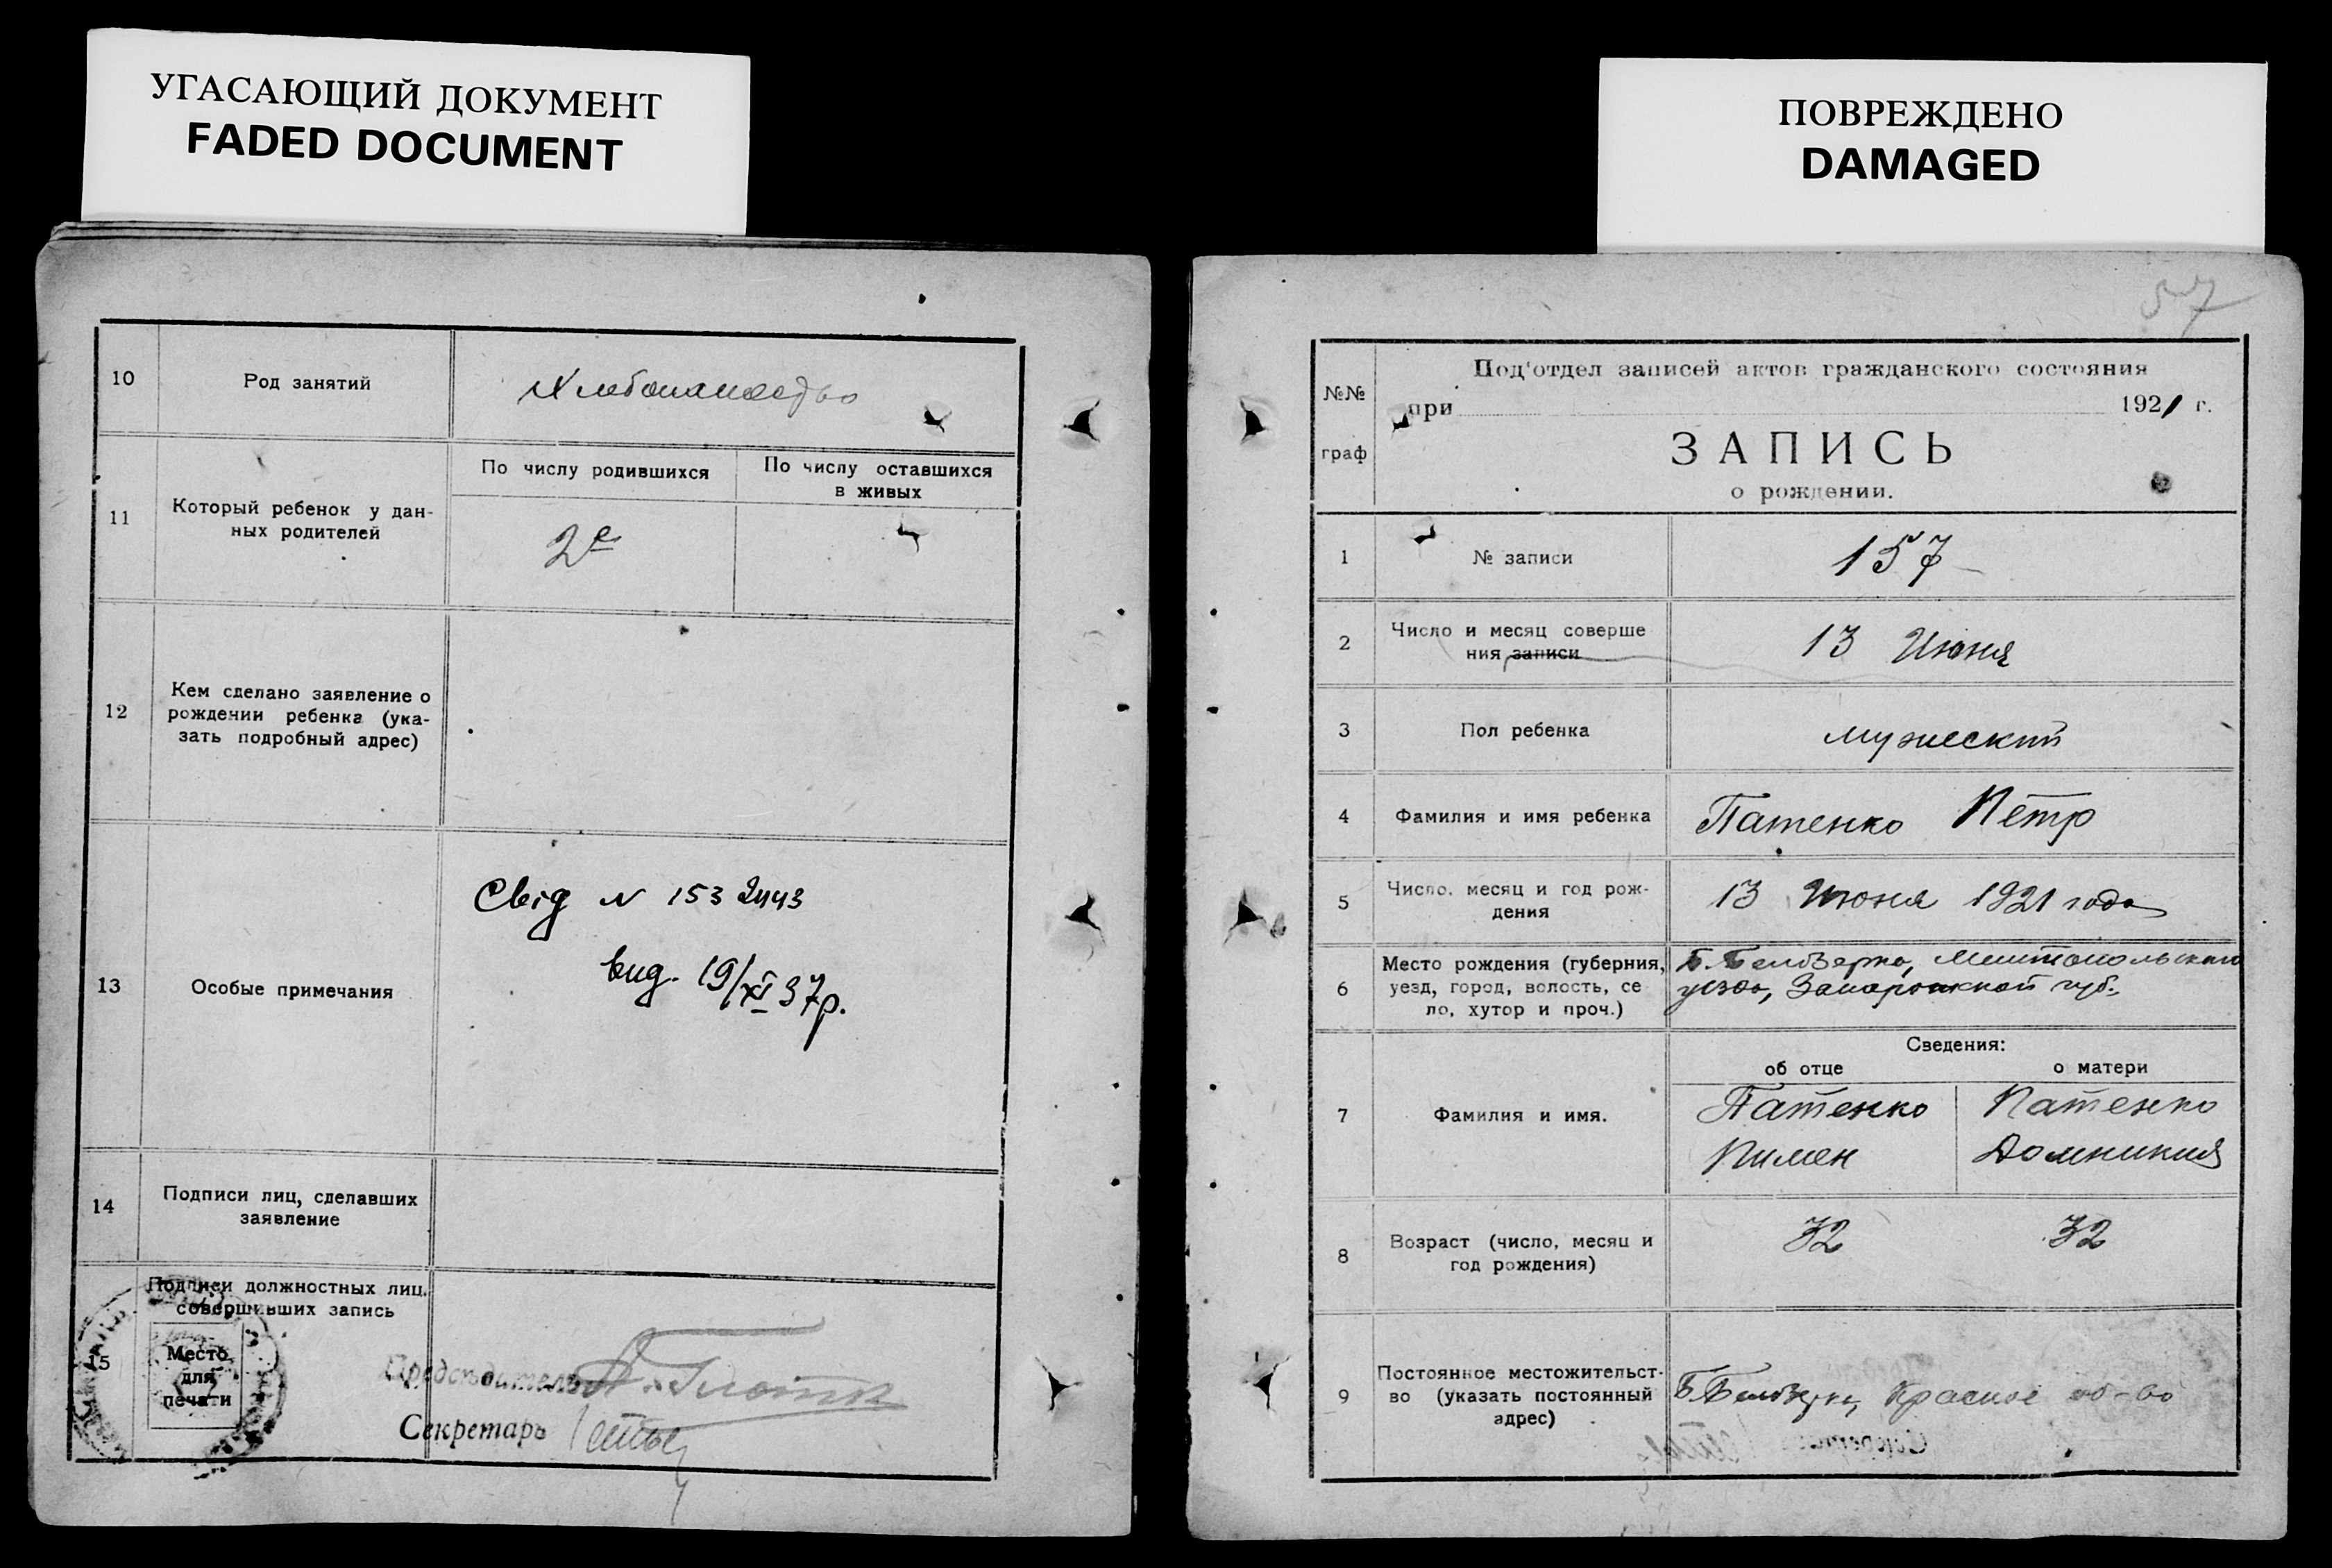 УГАСАЮЩИЙ ДОКУМЕНТ
FADED DOCUMENT
10
Род занятий
Хлебопашество
11
Который ребенок у дан-
ных родителей
По числу родившихся
По числу оставшихся
в живых
2е
12
Кем сделано заявление о
рождении ребенка (ука-
зать подробный адрес)
13
Особые примечания
Свід N 153 2443
вид. 19/XI 37р.
14
Подписи лиц, сделавших
заявление
15
Подписи должностных лиц,
совершивших запись
Место
для
печати
Председатель
Секретарь
ПОВРЕЖДЕНО
DAMAGED
57
№№
граф
Под'отдел записей актов гражданского состояния
при 1921 г.
ЗАПИСЬ
о рождении.
1
№ записи
157
2
Число и месяц соверше
ния записи
13 Июня
3
Пол ребенка
мужеский
4
Фамилия и имя ребенка
Патенко Петр
5
Число, месяц и год рож-
дения
13 Июня 1921 года
6
Место рождения (губерния,
уезд, город, волость, се
ло, хутор и проч.)
Б. Белозерка, Мелитопольского
уезда, Запорожской губ.
7
Фамилия и имя.
Сведения:
об отце
о матери
Патенко
Пимен
Патенко
Домникия
8
Возраст (число, месяц и
год рождения)
32
32
9
Постоянное местожительст-
во (указать постоянный
адрес)
Б Белозерка, Красное об-во